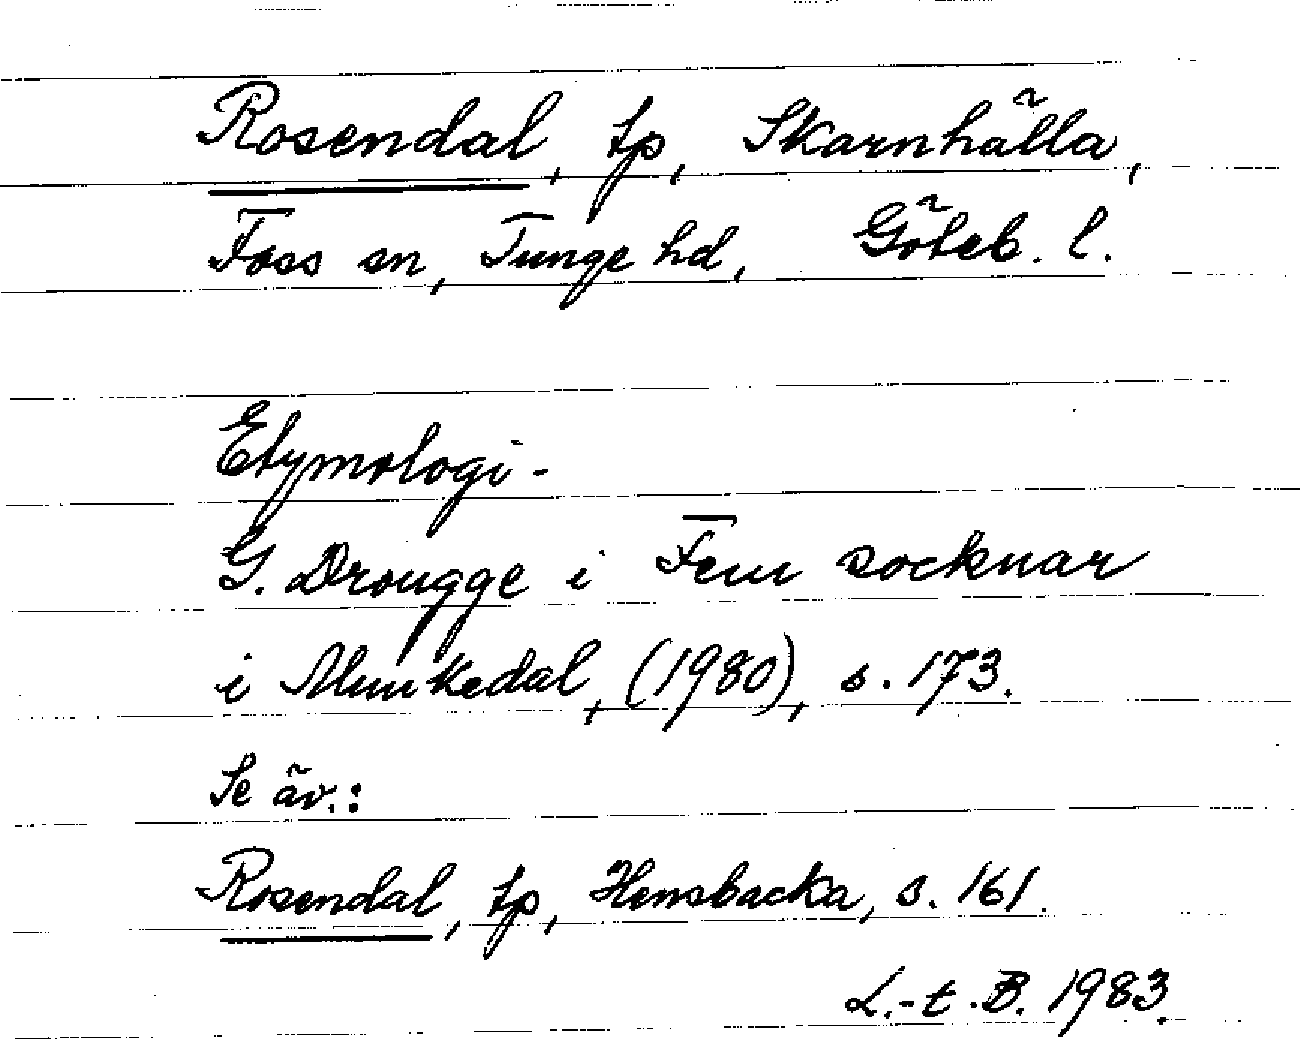 Rosendal, tp, Skarnhälla,
Foss sn, Tunge hd, Göteb. l.
Etymologi -
G. Drougge i Fem socknar
i Munkedal, (1980), s. 173.
Se äv.:
Rosendal, tp, Hensbacka, s. 161.
L.-t. B. 1983.